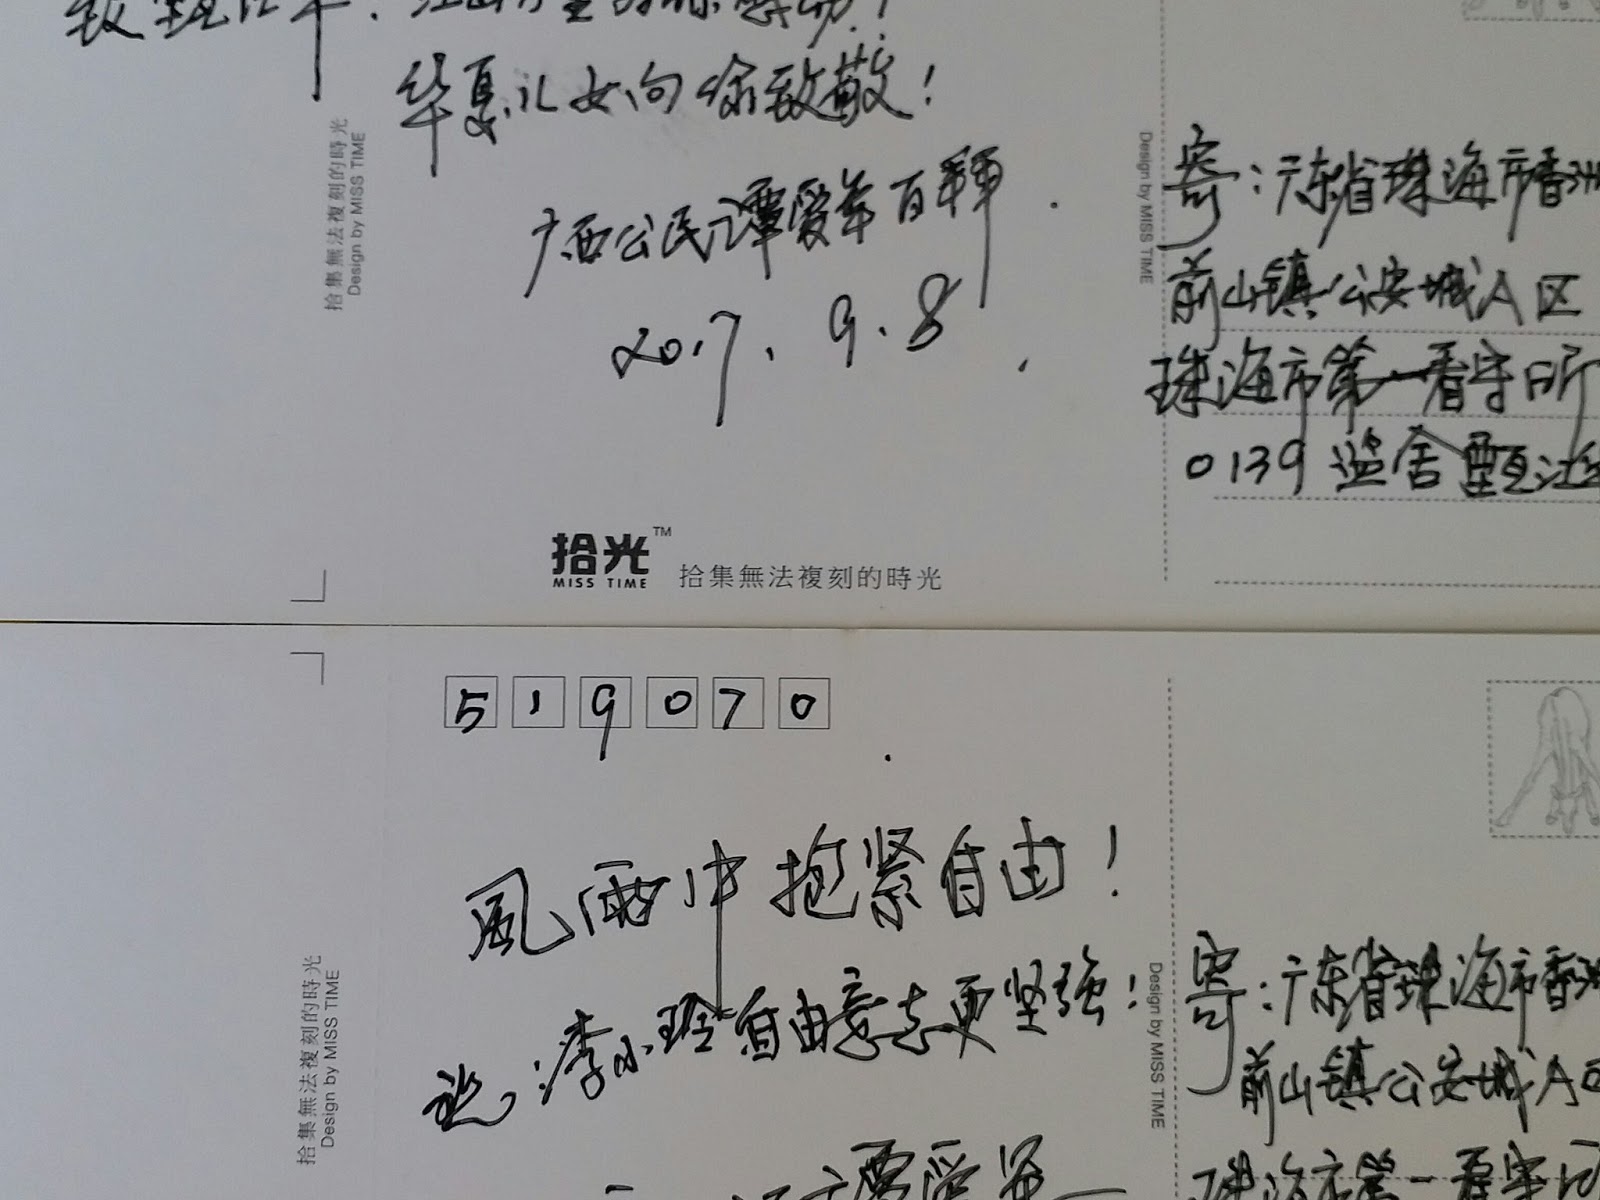 华夏儿女向你致敬！
广西公民谭爱军百拜.
2017.9.8
拾集無法複刻的時光
Design by MISS TIME
Design by MISS TIME
寄：广东省珠海市香洲
前山镇公安城A区
珠海市第一看守所
0139监舍甄江
拾光™
MISS TIME
拾集無法複刻的時光
519070
風雨中抱紧自由！
祝：李小玲自由意志更坚强！
拾集無法複刻的時光
Design by MISS TIME
Design by MISS TIME
寄：广东省珠海市香洲
前山镇公安城A区
谭爱军
珠海市第一看守所